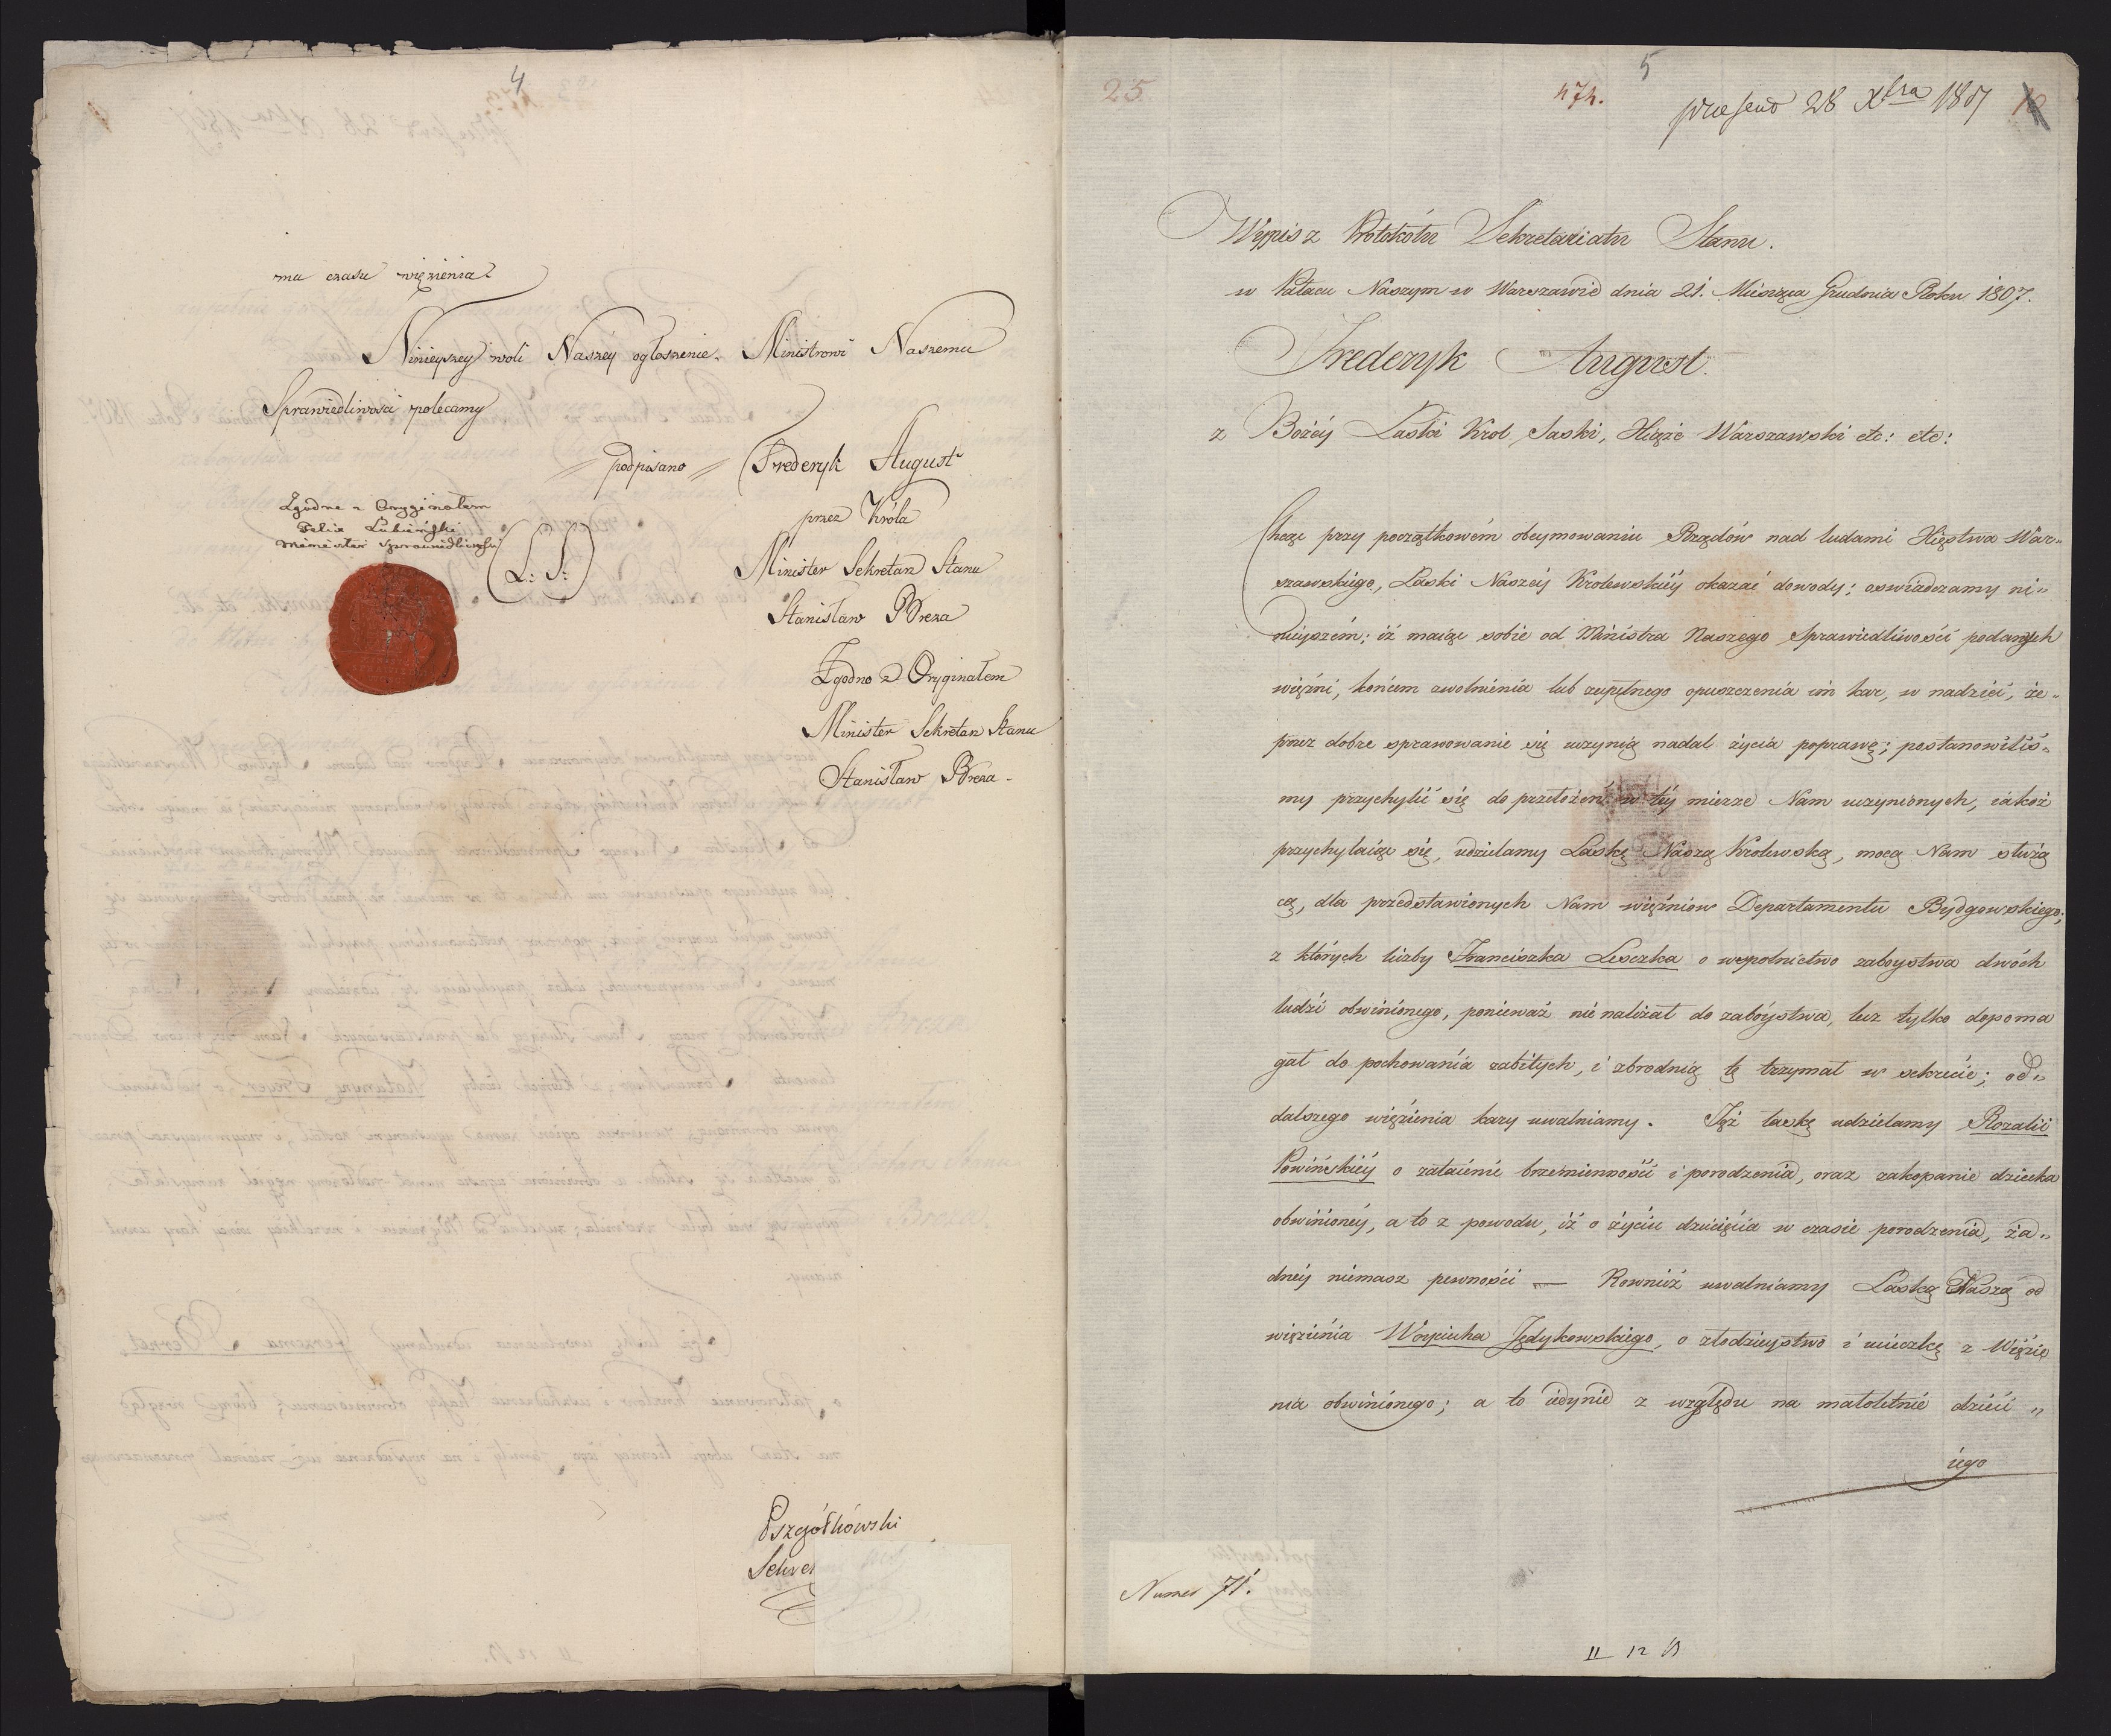 4
mu czasu więzienia
Ninieyszey woli Naszey ogłoszenie Ministrowi Naszemu
Sprawiedliwości polecamy
podpisano Frederyk August
przez Króla
Minister Sekretarz Stanu
Stanisław Breza
Zgodno z Oryginałem
Minister Sekretarz Stanu
Stanisław Breza
Zgodne z Oryginałem
Felix Łubieński
Minister Sprawiedliwości
(L: S:)
Pszgółkówski
5
25
474.
praesent 28 Xbra 1807
Wypis z Protokółu Sekretariatu Stanu.
w Pałacu Naszym w Warszawie dnia 21. Miesiąca Grudnia Roku 1807.
Frederyk August.
z Bożéy Łaski Krol Saski, Xiąże Warszawski etc: etc:
Chcąc przy początkowém obeymowaniu Rządów nad ludami Xięstwa War„
szawskiego, Łaski Naszéy Krolewskiéy okazać dowody; oswiadczamy ni„
nieyszém; iż maiąc sobie od Ministra Naszego Sprawiedliwości podanych
więźni, końcem zwolnienia lub zupełnego opuszczenia im kar, w nadziei, że„
przez dobre sprawowanie się uczynią nadal życia poprawę; postanowiliś„
my przychylić się do przełożeń w téy mierze Nam uczynionych, iakoż
przychylaiąc się, udzielamy Łaskę Naszą Krolewską, mocą Nam służą
cą, dla przedstawionych Nam więźniow Departamentu Bydgowskiego;
z których liczby Franciszka Leszka o wspolnictwo zaboystwa dwóch
ludzi obwinionego, ponieważ nie należał do zabóystwa, lecz tylko dopoma
gał do pochowania zabitych, i zbrodnią tę trzymał w sekrecie; od„
dalszego więzienia kary uwalniamy. Tęż łaskę udzielamy Rozalii
Powińskiéy o zataienie brzemienności i porodzenia, oraz zakopanie dziecka
obwinionéy, a to z powodu, iż o życiu dziecięcia w czasie porodzenia, ża„
dnéy niemasz pewności — Rownież uwalniamy Łaską Naszą od
więzienia Woyciecha Jędykowskiego, o złodzieystwo i ucieczkę z Więzie
nia obwinionego; a to iedynie z względu na małoletnie dzieci „
iego
Numer 71.